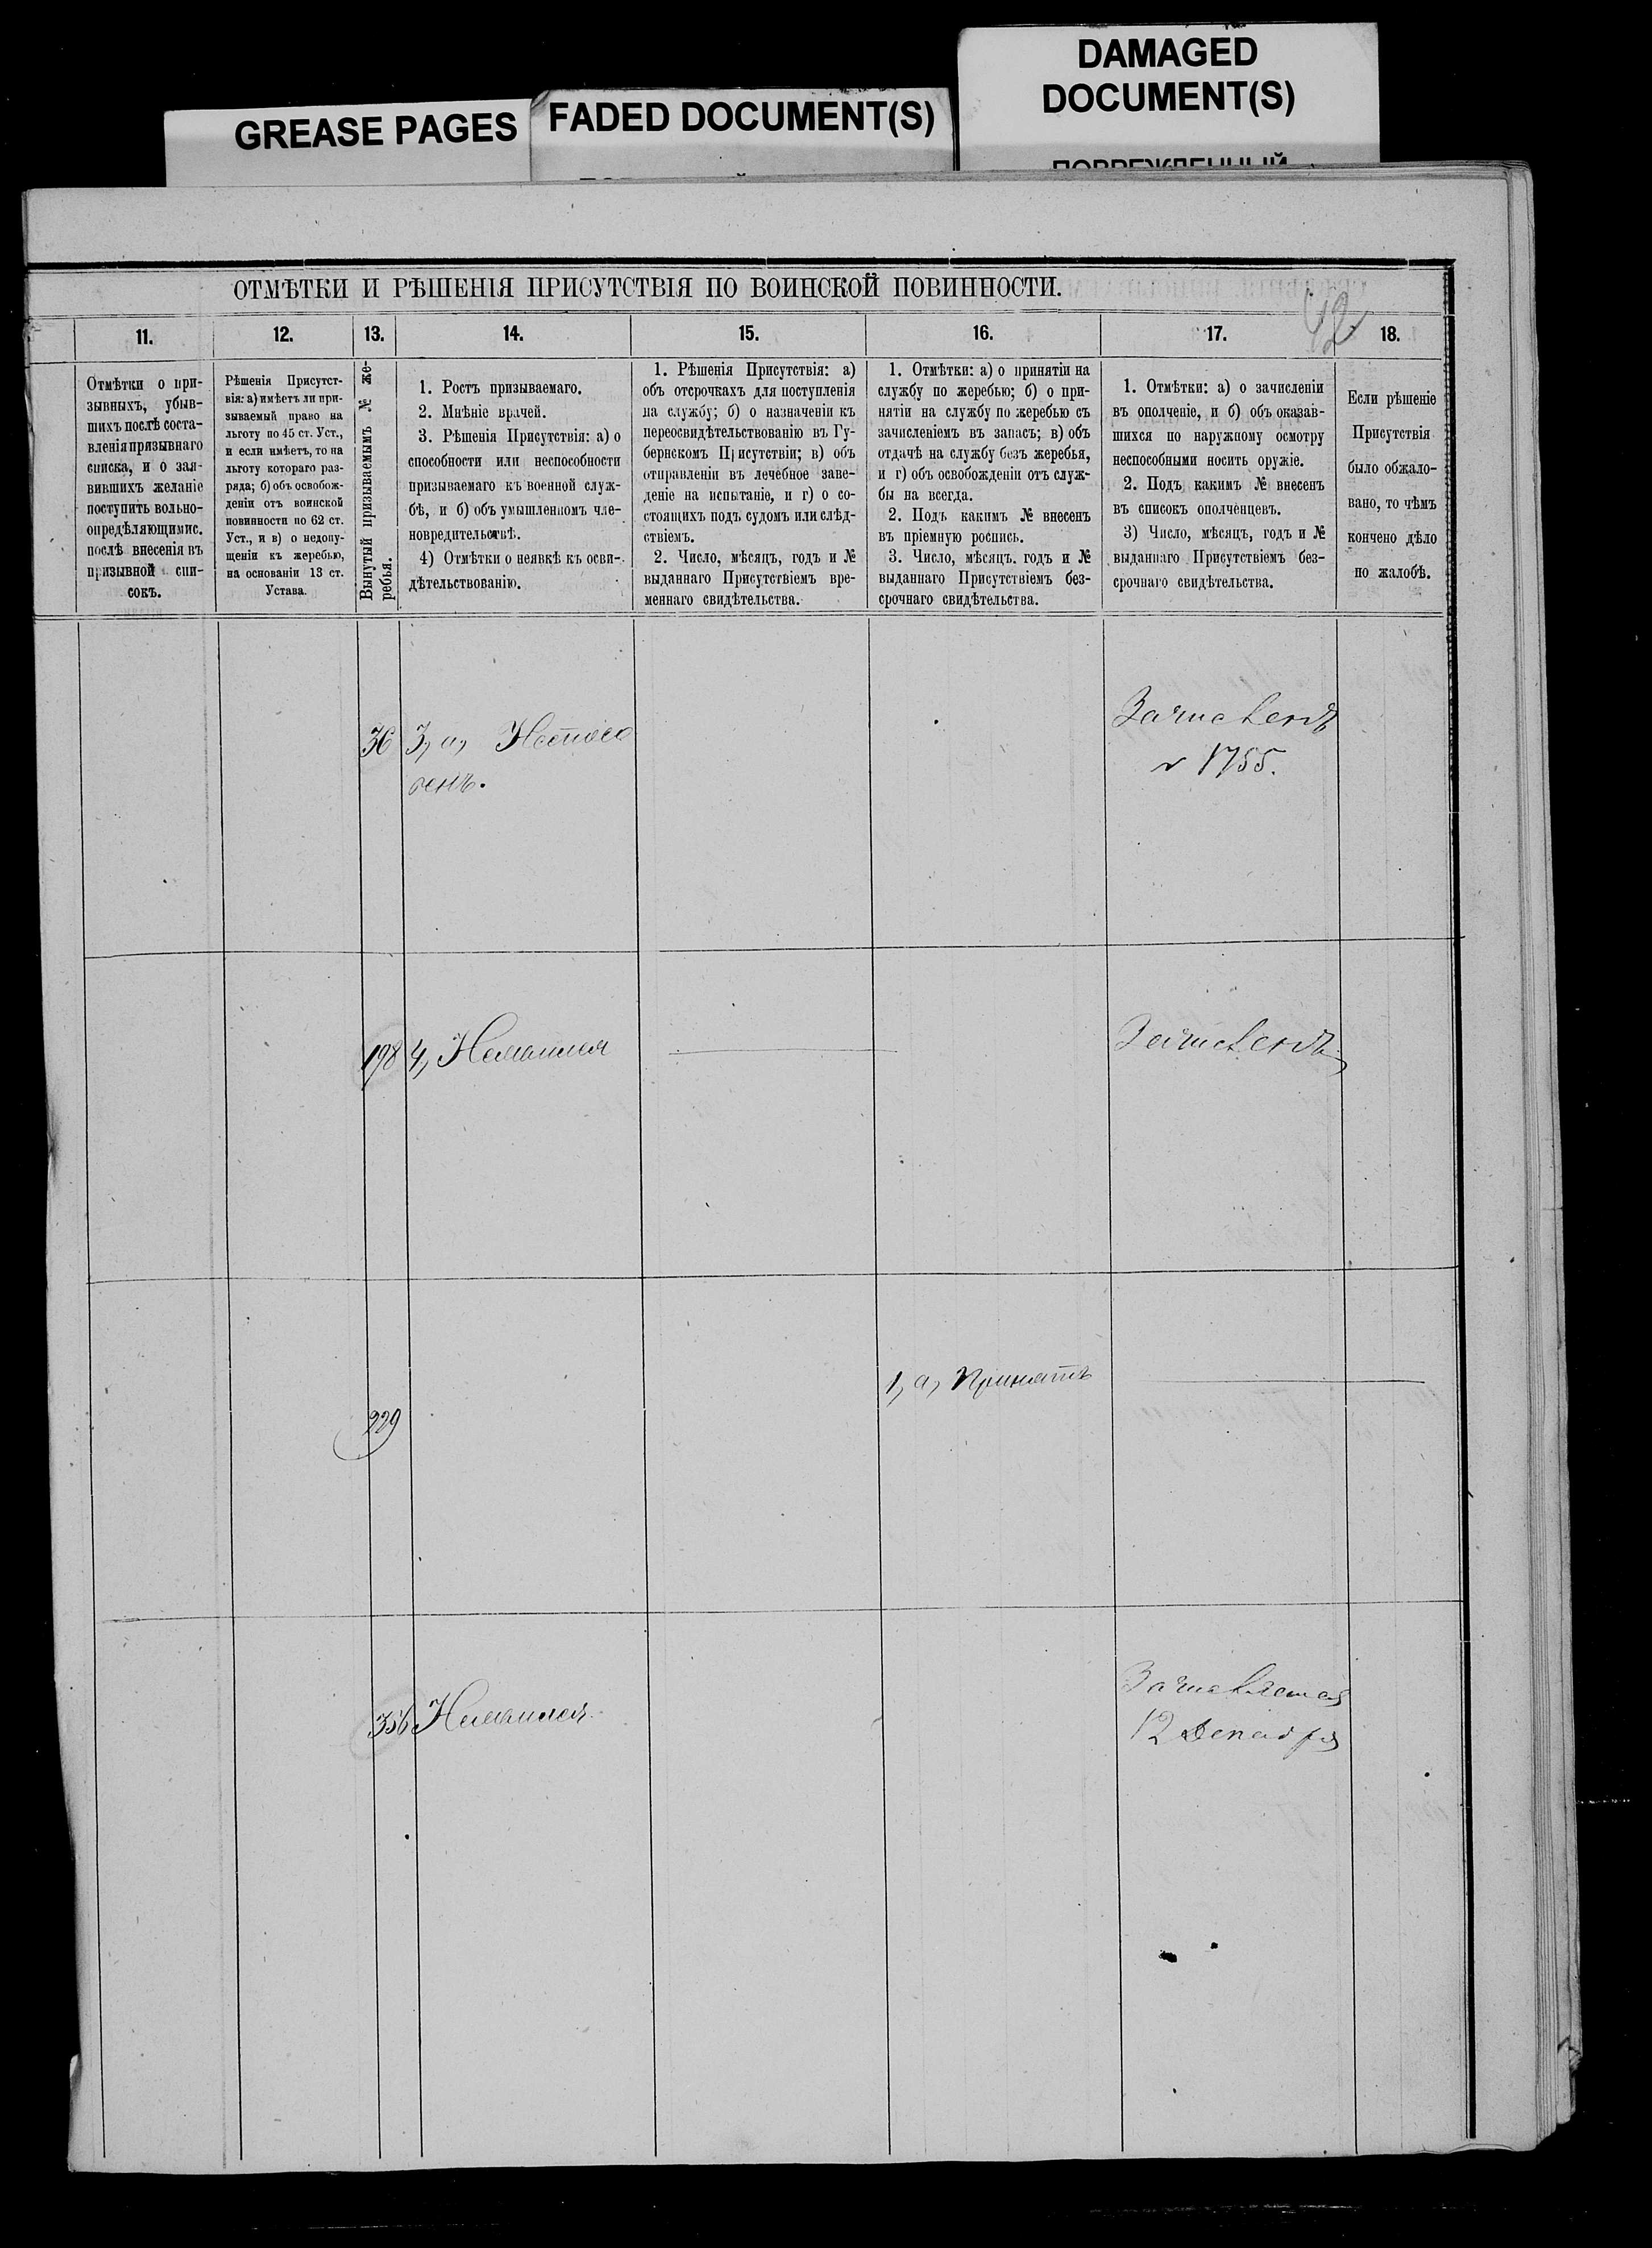 GREASE PAGES
FADED DOCUMENT(S)
DAMAGED
DOCUMENT(S)
ПОВРЕЖДЕННЫЙ
ОТМѢТКИ И РѢШЕНІЯ ПРИСУТСТВІЯ ПО ВОИНСКОЙ ПОВИННОСТИ.
42
11.
12.
13.
14.
15.
16.
17.
18.
Отмѣтки о при-
зывныхъ, убыв-
шихъ послѣ соста-
вленія призывнаго
списка, и о зая-
вившихъ желаніе
поступить вольно-
опредѣляющимис.
послѣ внесенія въ
призывной спи-
сокъ.
Рѣшенія Присутст-
вія: а) имѣетъ ли при-
зываемый право на
льготу по 45 ст. Уст.,
и если имѣетъ, то на
льготу котораго раз-
ряда; б) объ освобож-
деніи отъ воинской
повинности по 62 ст.
Уст., и в) о недопу-
щеніи къ жеребью,
на основаніи 13 ст.
Устава.
Вынутый призываемымъ № же-
ребья.
1. Ростъ призываемаго.
2. Мнѣніе врачей.
3. Рѣшенія Присутствія: а) о
способности или неспособности
призываемаго къ военной служ-
бѣ, и б) объ умышленномъ чле-
новредительствѣ.
4) Отмѣтки о неявкѣ къ осви-
дѣтельствованію.
1. Рѣшенія Присутствія: а)
объ отсрочкахъ для поступленія
на службу; б) о назначеніи къ
переосвидѣтельствованію въ Гу-
бернскомъ Присутствіи; в) объ
отправленіи въ лечебное заве-
деніе на испытаніе, и г) о со-
стоящихъ подъ судомъ или слѣд-
ствіемъ.
2. Число, мѣсяцъ, годъ и №
выданнаго Присутствіемъ вре-
меннаго свидѣтельства.
1. Отмѣтки: а) о принятіи на
службу по жеребью; б) о при-
нятіи на службу по жеребью съ
зачисленіемъ въ запасъ; в) объ
отдачѣ на службу безъ жеребья,
и г) объ освобожденіи отъ служ-
бы на всегда.
2. Подъ какимъ № внесенъ
въ пріемную роспись.
3. Число, мѣсяцъ. годъ и №
выданнаго Присутствіемъ без-
срочнаго свидѣтельства.
1. Отмѣтки: а) о зачисленіи
въ ополченіе, и б) объ оказав-
шихся по наружному осмотру
неспособными носить оружіе.
2. Подъ какимъ № внесенъ
въ списокъ ополченцевъ.
3) Число, мѣсяцъ, годъ и №
выданнаго Присутствіемъ без-
срочнаго свидѣтельства.
Если рѣшеніе
Присутствія
было обжало-
вано, то чѣмъ
кончено дѣло
по жалобѣ.
36 3, а, Неспосо
бенъ.
Зачисленъ
№ 1755.
198 4, Неявился
Зачисленъ
229
1, а, Принятъ
356 Неявился
Зачисляется
12 Декабря